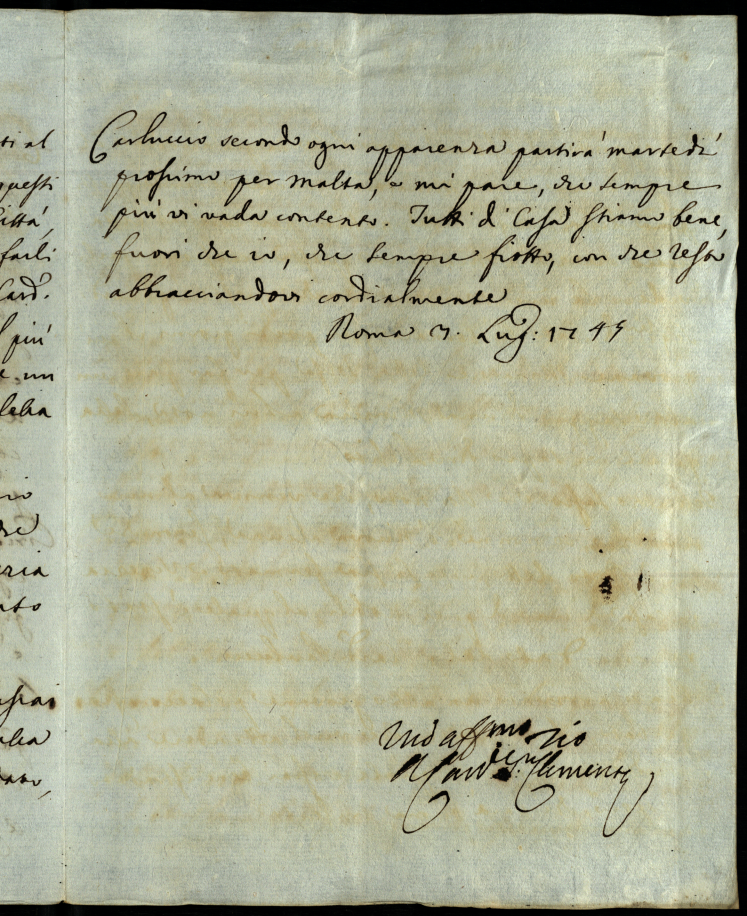 ti al
questi
ittá,
farli
Card.
più
e un
leba
rio
che
eria
nto
Carluccio secondo ogni apparenza partirà martedì
prossimo per Malta, e mi pare, che sempre
più vi vada contento. Tutti di Casa stiamo bene,
fuori che io, che sempre fiotto, con che resto
abbracciandovi cordialmente
Roma 3. Lug: 1745
Zio
Il Card: Clemente